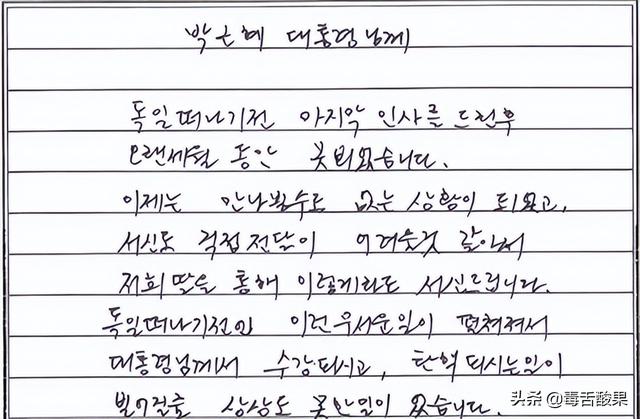 박근혜 대통령님께
독일떠나기전 마지막 인사를 드린후
오랜세월 동안 못뵈었습니다.
이제는 만나볼수도 없는 상황이 되었고,
서신도 직접전달이 어려울것 같아서
저희딸을 통해 이렇게라도 서신드립니다.
독일떠나기전엔 이런우서운일이 펼쳐져서
대통령님께서 수감되시고, 탄핵되시는일이
벌어질줄 상상도 못한일이 었습니다.
头条 @毒舌酸果